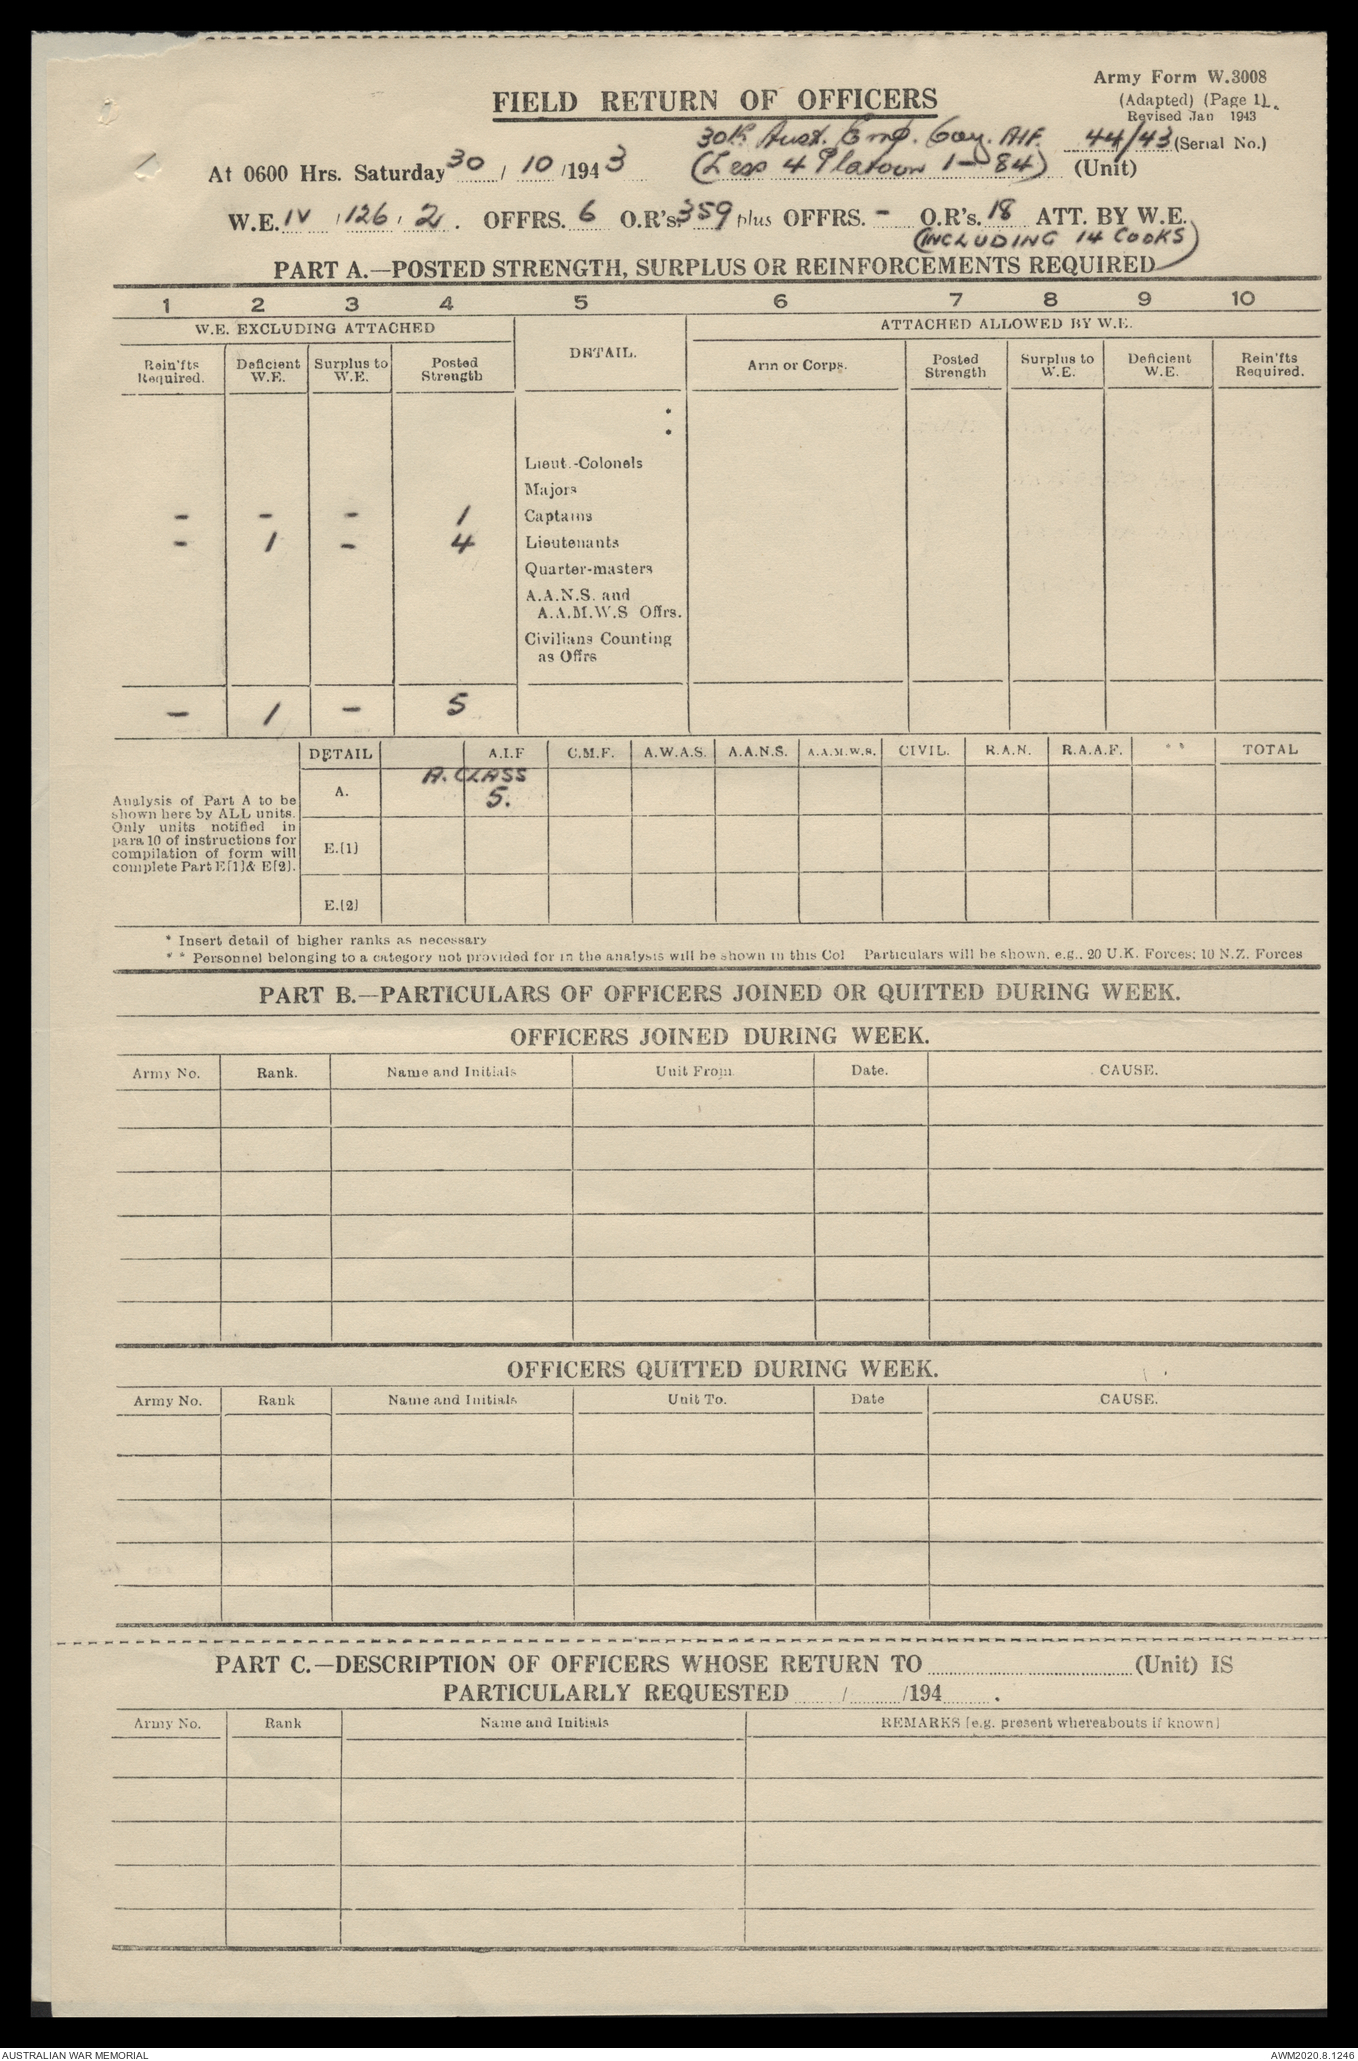 Army Form W.3008
FIELD RETURN OF OFFICERS
(Adapted) (Page 1).
Revised Jan 1943
30th Aust. Emp. Coy. AIF. 44/43 (Serial No.)
At 0600 Hrs. Saturday 30 / 10 /1943 (Less 4 Platoon 1 - 84) (Unit)
W.E. IV / 126 / 2 . OFFRS. 6 O.R's. 359 plus OFFRS. - O.R's. 18 ATT. BY W.E.
(INCLUDING 14 COOKS)
PART A.—POSTED STRENGTH, SURPLUS OR REINFORCEMENTS REQUIRED
1 2 3 4 5 6 7 8 9 10
W.E. EXCLUDING ATTACHED DETAIL. ATTACHED ALLOWED BY W.E.
Rein'fts Required. Deficient W.E. Surplus to W.E. Posted Strength Arm or Corps. Posted Strength Surplus to W.E. Deficient W.E. Rein'fts Required.
*
*
Lieut.-Colonels
Majors
- - - 1 Captains
- 1 - 4 Lieutenants
Quarter-masters
A.A.N.S. and
A.A.M.W.S Offrs.
Civilians Counting
as Offrs
- 1 - 5
DETAIL A.I.F C.M.F. A.W.A.S. A.A.N.S. A.A.M.W.S. CIVIL. R.A.N. R.A.A.F. * * TOTAL
A. CLASS
A. 5.
Analysis of Part A to be
shown here by ALL units.
Only units notified in
para 10 of instructions for
compilation of form will
complete Part E[1]& E[2].
E.[1]
E.[2]
* Insert detail of higher ranks as necessary
* * Personnel belonging to a category not provided for in the analysis will be shown in this Col Particulars will be shown, e.g., 20 U.K. Forces; 10 N.Z. Forces
PART B.—PARTICULARS OF OFFICERS JOINED OR QUITTED DURING WEEK.
OFFICERS JOINED DURING WEEK.
Army No. Rank. Name and Initials Unit From Date. CAUSE.
OFFICERS QUITTED DURING WEEK.
Army No. Rank Name and Initials Unit To. Date CAUSE.
PART C.—DESCRIPTION OF OFFICERS WHOSE RETURN TO (Unit) IS
PARTICULARLY REQUESTED / /194 .
Army No. Rank Name and Initials REMARKS [e.g. present whereabouts if known]
AUSTRALIAN WAR MEMORIAL AWM2020.8.1246